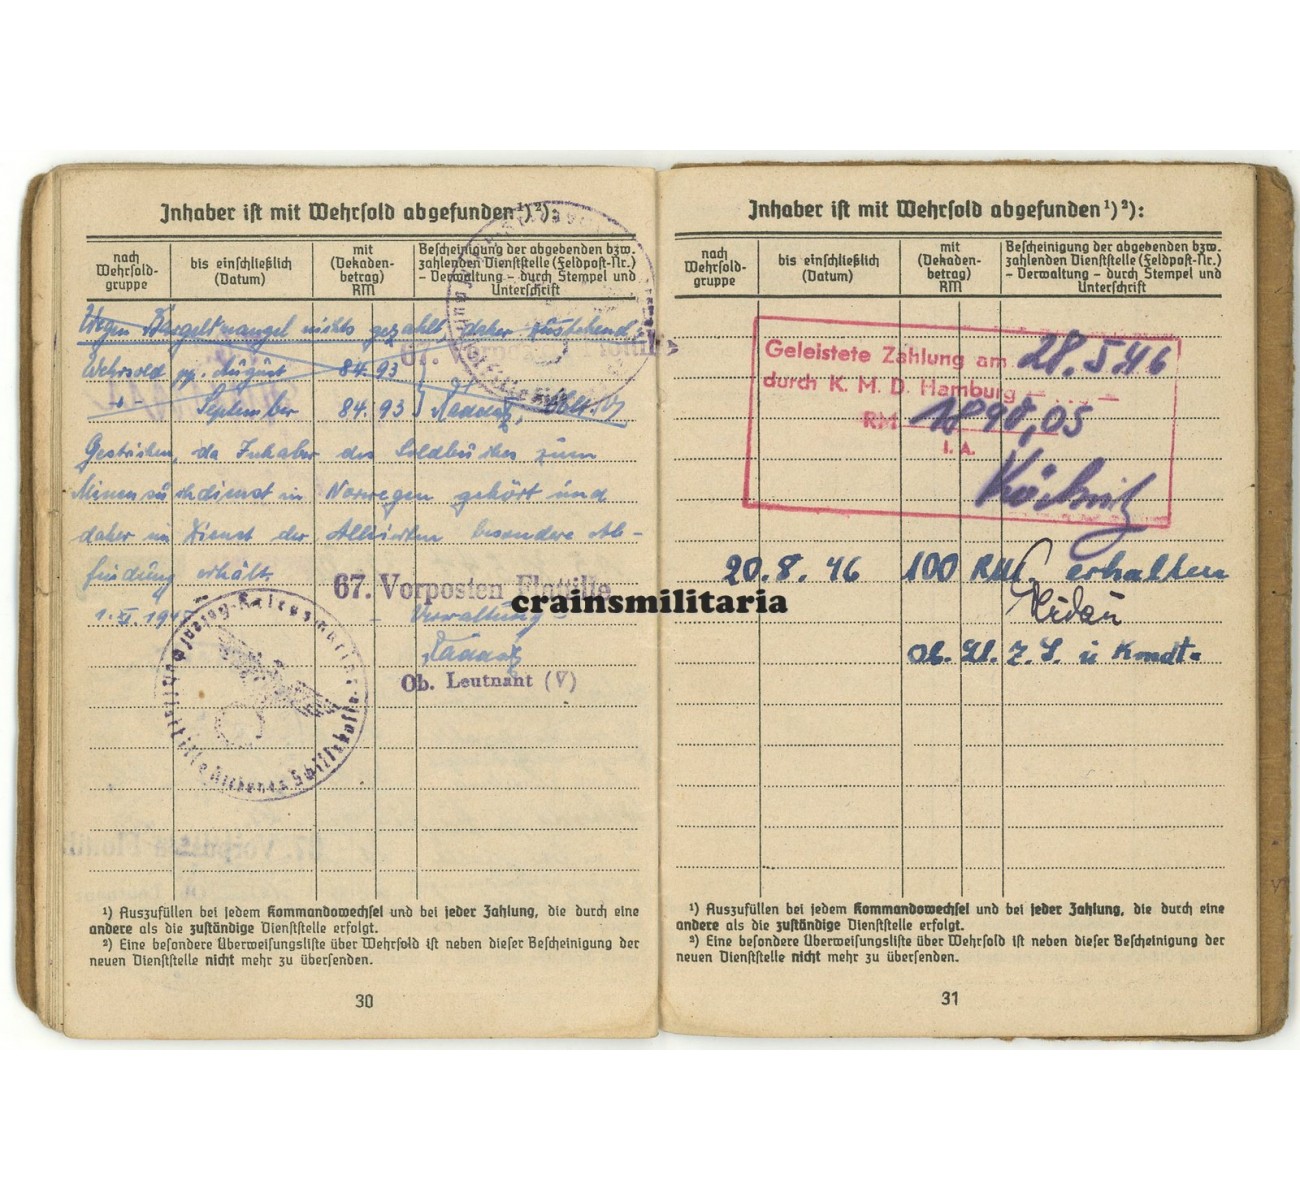 Inhaber ist mit Wehrsold abgefunden¹)²):
nach Wehrsold-gruppe
bis einschließlich (Datum)
mit (Dekaden-betrag) RM
Bescheinigung der abgebenden bzw. zahlenden Dienststelle (Feldpost-Nr.) – Verwaltung – durch Stempel und Unterschrift
Wegen Bargeldmangel nichts gezahlt, daher zustehend:
67. Vorposten Flottille
Wehrsold pp. August 84.93
" September 84.93
Gestrichen, da Inhaber des Soldbuches zum
Minensuchdienst in Norwegen gehört und
daher im Dienst der Alliierten besondere Ab-
findung erhält.
67. Vorposten Flottille
– Verwaltung –
Ob. Leutnant (V)
¹) Auszufüllen bei jedem Kommandowechsel und bei jeder Zahlung, die durch eine
andere als die zuständige Dienststelle erfolgt.
²) Eine besondere Überweisungsliste über Wehrsold ist neben dieser Bescheinigung der
neuen Dienststelle nicht mehr zu übersenden.
30
Inhaber ist mit Wehrsold abgefunden¹)²):
nach Wehrsold-gruppe
bis einschließlich (Datum)
mit (Dekaden-betrag) RM
Bescheinigung der abgebenden bzw. zahlenden Dienststelle (Feldpost-Nr.) – Verwaltung – durch Stempel und Unterschrift
Geleistete Zahlung am 28.5.46
durch K. M. D. Hamburg
RM 1890,05
I. A.
20.8.46 100 RM erhalten
Ob. Lt. z. S. u Komdt.
¹) Auszufüllen bei jedem Kommandowechsel und bei jeder Zahlung, die durch eine
andere als die zuständige Dienststelle erfolgt.
²) Eine besondere Überweisungsliste über Wehrsold ist neben dieser Bescheinigung der
neuen Dienststelle nicht mehr zu übersenden.
31
crainsmilitaria